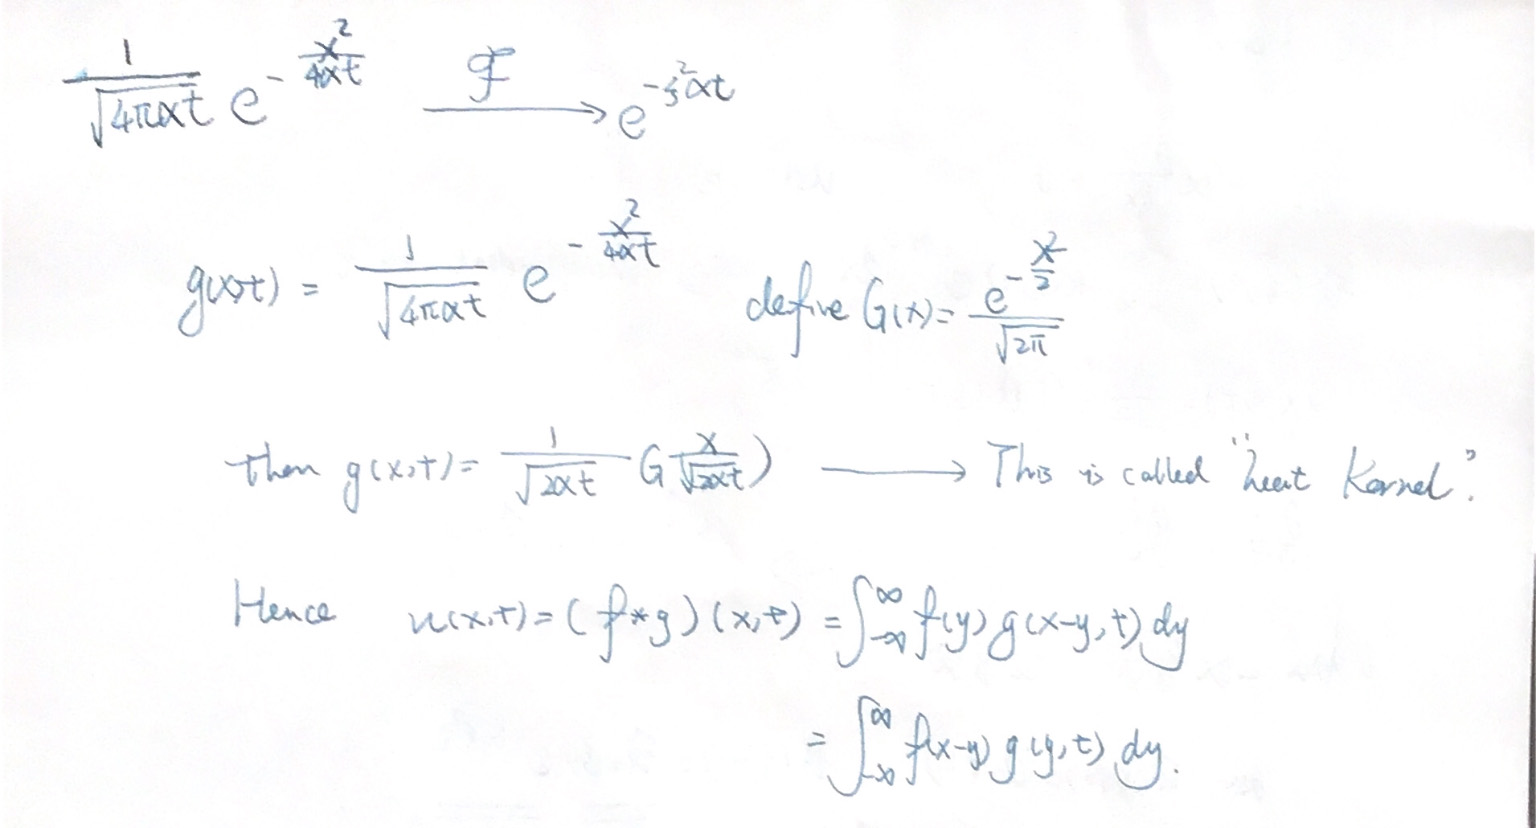 $\frac{1}{\sqrt{4\pi\alpha t}} e^{-\frac{x^2}{4\alpha t}} \xrightarrow{\mathcal{F}} e^{-\xi^2 \alpha t}$
$g(x,t) = \frac{1}{\sqrt{4\pi\alpha t}} e^{-\frac{x^2}{4\alpha t}}$ define $G(x) = \frac{e^{-\frac{x^2}{2}}}{\sqrt{2\pi}}$
then $g(x,t) = \frac{1}{\sqrt{2\alpha t}} G(\frac{x}{\sqrt{2\alpha t}})$ ⟶ This is called "heat Kernel".
Hence $u(x,t) = (f*g)(x,t) = \int_{-\infty}^{\infty} f(y) g(x-y,t) dy$
$= \int_{-\infty}^{\infty} f(x-y) g(y,t) dy.$